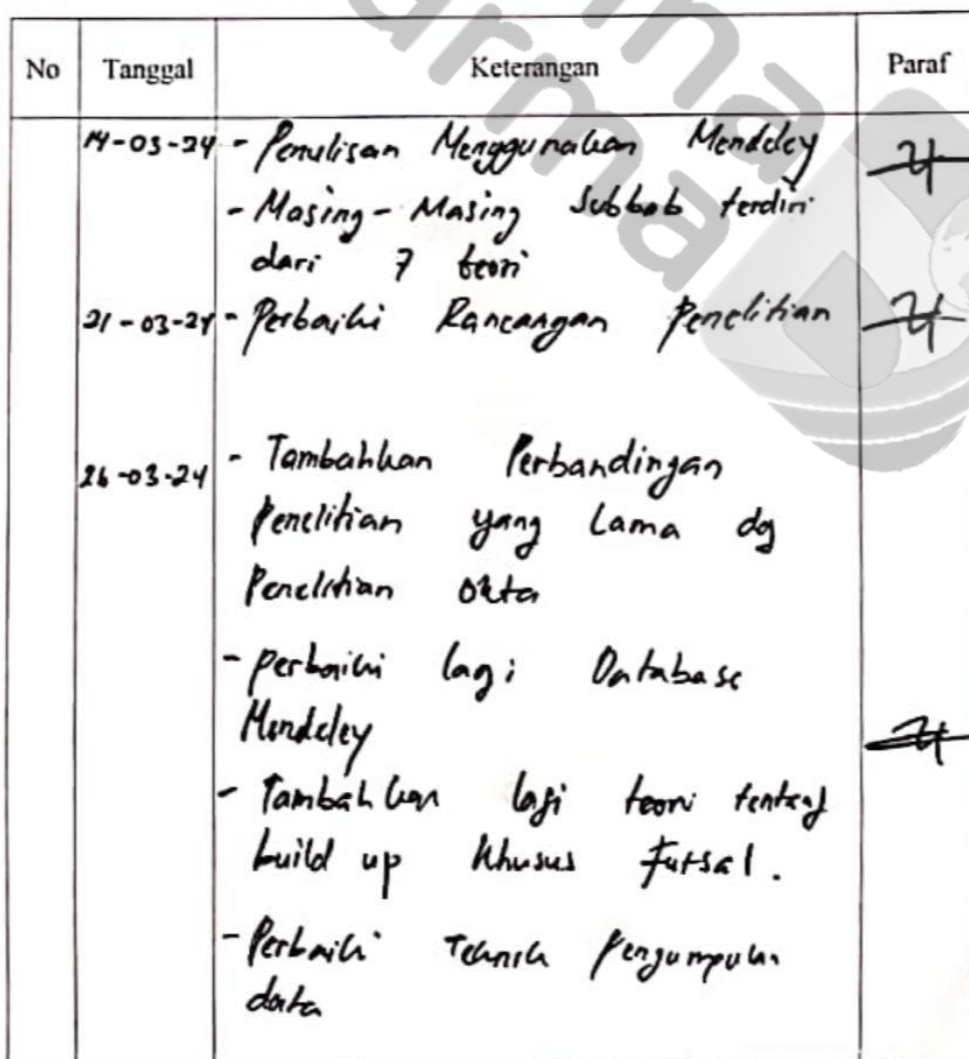 No Tanggal Keterangan Paraf
14-03-24 - Penulisan Menggunakan Mendeley
- Masing - Masing Subbab terdiri
dari 7 teori
21-03-24 - Perbaiki Rancangan Penelitian
26-03-24 - Tambahkan Perbandingan
Penelitian yang Lama dg
Penelitian Okta
- Perbaiki lagi Database
Mendeley
- Tambahkan lagi teori tentang
build up khusus Futsal.
- Perbaiki Teknik Pengumpulan
data